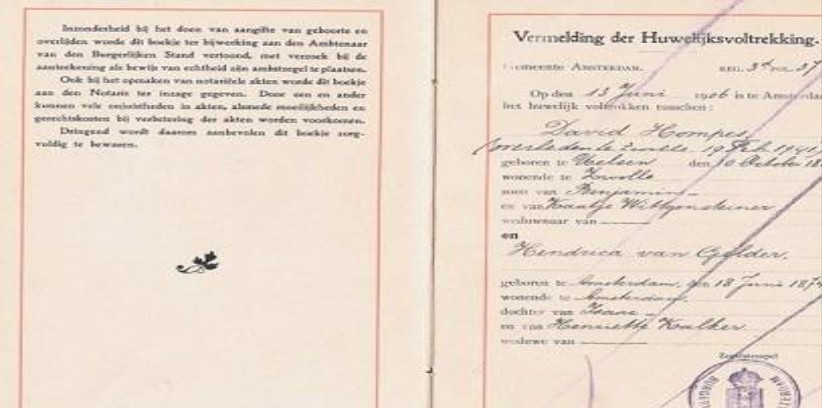 Inzonderheid bij het doen van aangifte van geboorte en
overlijden worde dit boekje ter bijwerking aan den Ambtenaar
van den Burgerlijken Stand vertoond, met verzoek bij de
aanteekening als bewijs van echtheid zijn ambtzegel te plaatsen.
Ook bij het opmaken van notariëele akten worde dit boekje
aan den Notaris ter inzage gegeven. Door een en ander
kunnen vele onjuistheden in akten, alsmede moeilijkheden en
gerechtskosten bij verbetering der akten worden voorkomen.
Dringend wordt daarom aanbevolen dit boekje zorg-
vuldig te bewaren.
Vermelding der Huwelijksvoltrekking.
Gemeente AMSTERDAM. REG. 3d FOL. 37
Op den 13 Juni 1906 is te Amsterda
het huwelijk voltrokken tusschen:
David Hompes,
(overleden te Zwolle 19 Feb. 1941)
geboren te Uelsen den 10 October 18
wonende te Zwolle
zoon van Benjamin
en van Kaatje
weduwnaar van
en
Hendrica van Gelder.
geboren te Amsterdam, den 18 Juni 187
wonende te Amsterdam.
dochter van Isaac
en van Henriette Kalker
weduwe van